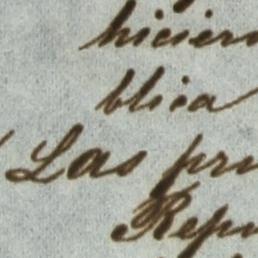 hicier
blica
Las pri
Repu